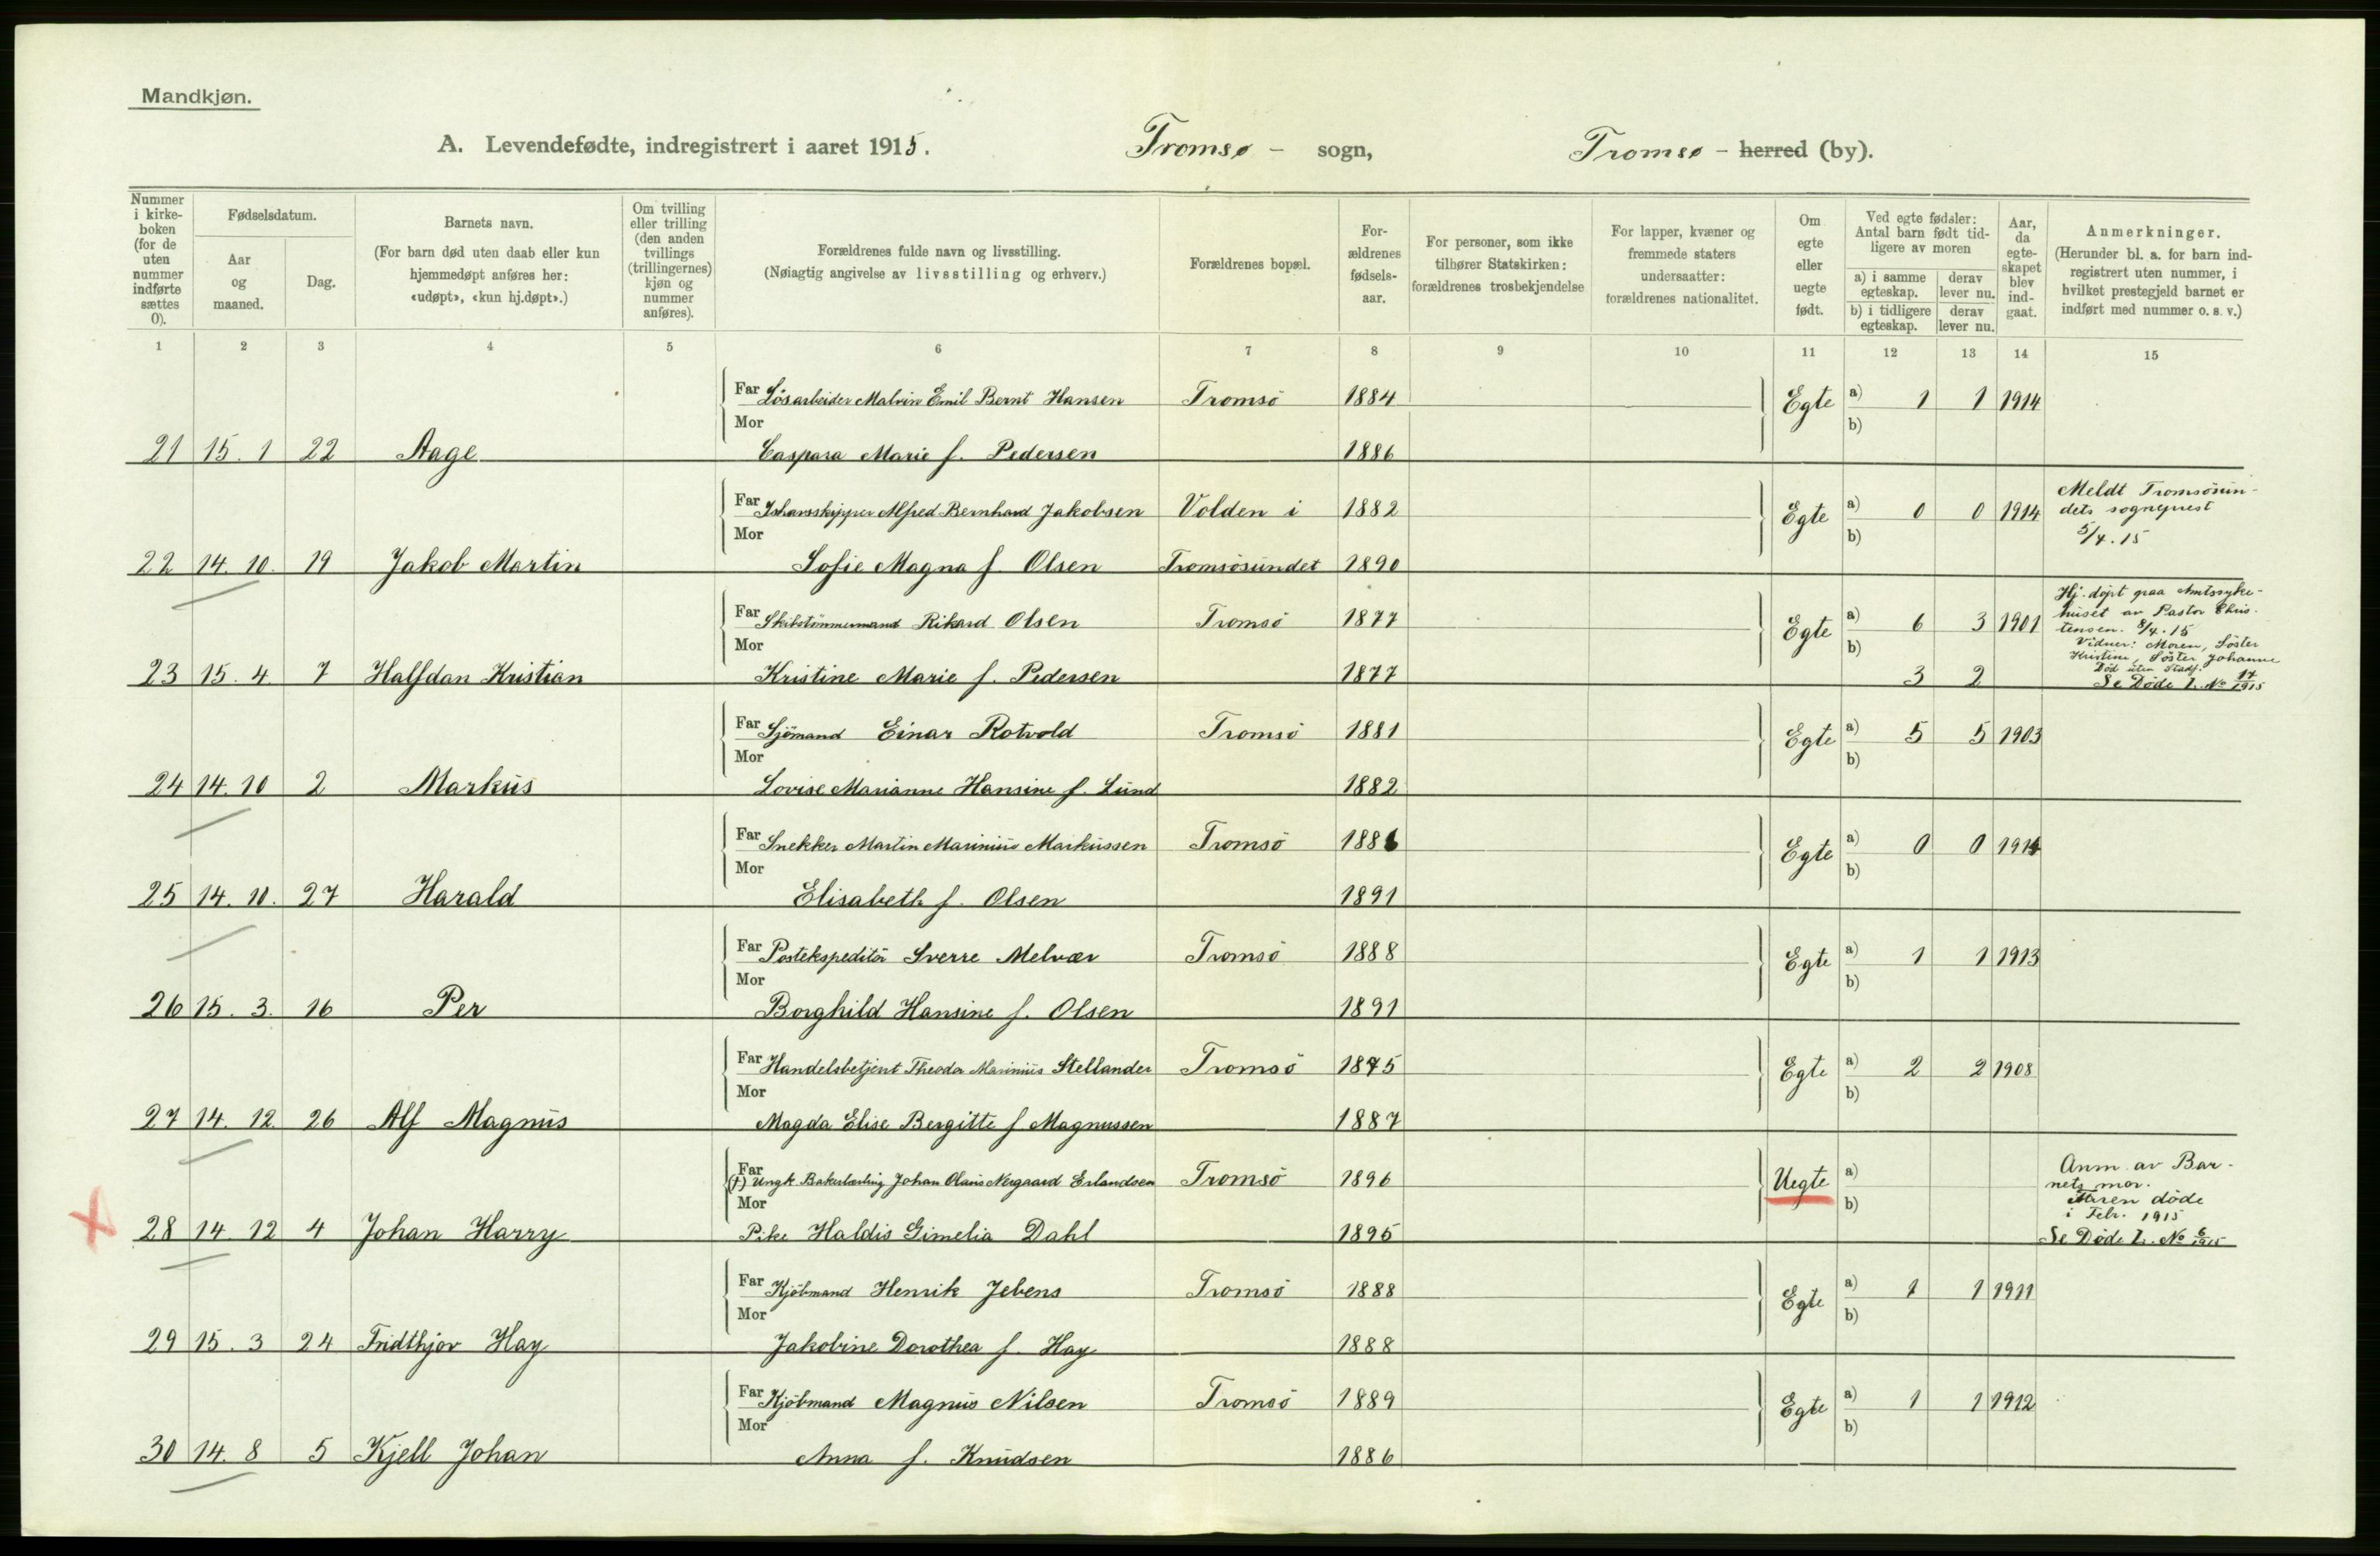 Mandkjøn.
A. Levendefødte, indregistrert i aaret 1915. Tromsø - sogn, Tromsø - herred (by).
Nummer i kirkeboken (for de uten nummer indførte sættes 0).
Fødselsdatum.
Aar og maaned.
Dag.
Barnets navn.
(For barn død uten daab eller kun hjemmedøpt anføres her: «udøpt», «kun hj.døpt».)
Om tvilling eller trilling (den anden tvillings (trillingernes) kjøn og nummer anføres).
Forældrenes fulde navn og livsstilling.
(Nøiagtig angivelse av livsstilling og erhverv.)
Forældrenes bopæl.
For-ældrenes fødsels-aar.
For personer, som ikke tilhører Statskirken: forældrenes trosbekjendelse
For lapper, kvæner og fremmede staters undersaatter: forældrenes nationalitet.
Om egte eller uegte født.
Ved egte fødsler: Antal barn født tid-ligere av moren
a) i samme egteskap. derav lever nu.
b) i tidligere egteskap. derav lever nu.
Aar, da egte-skapet blev ind-gaat.
Anmerkninger.
(Herunder bl. a. for barn ind-registrert uten nummer, i hvilket prestegjeld barnet er indført med nummer o. s. v.)
1 2 3 4 5 6 7 8 9 10 11 12 13 14 15
Far Løsarbeider Malvin Emil Bernt Hansen Tromsö 1884 Egte a) 1 1 1914
Mor b)
21 15. 1 22 Aage Caspara Marie f. Pedersen 1886
Far Ishavsskipper Alfred Bernhard Jakobsen Volden i 1882 Egte a) 0 0 1914 Meldt Tromsösun-dets sogneprest 5/4. 15
Mor b)
22 14. 10. 19 Jakob Martin Sofie Magna f. Olsen Tromsösundet 1890
Far Skibstömmermand Rikard Olsen Tromsö 1877 Egte a) 6 3 1901 Hj. döpt paa Amtssyke-huset av Pastor Chris-tensen. 8/4. 15
Mor b) Vidner: Moren, Söster Kristine, Söster Johanne
23 15. 4 7 Halfdan Kristian Kristine Marie f. Pedersen 1877 3 2 Död uten Stadf. Se Döde L. No 17/1915
Far Sjömand Einar Rotvold Tromsö 1881 Egte a) 5 5 1903
Mor b)
24 14. 10 2 Markus Lovise Marianne Hansine f. Lund 1882
Far Snekker Martin Marinius Markussen Tromsö 1886 Egte a) 0 0 1914
Mor b)
25 14. 10. 27 Harald Elisabeth f. Olsen 1891
Far Postekspeditör Sverre Melvær Tromsö 1888 Egte a) 1 1 1913
Mor b)
26 15. 3. 16 Per Borghild Hansine f. Olsen 1891
Far Handelsbetjent Theodor Marinius Stellander Tromsö 1875 Egte a) 2 2 1908
Mor b)
27 14. 12. 26 Alf Magnus Magda Elise Bergitte f Magnussen 1887
Far (†) Ungk Bakerlærling Johan Olaus Nergaard Erlandsen Tromsö 1896 Uegte a) Anm. av Bar-nets mor.
Mor b) döde i Febr. 1915
28 14. 12 4 Johan Harry Pike Haldis Gimelia Dahl 1895 Se Döde L. No 6/1915
Far Kjöbmand Henrik Jebens Tromsö 1888 Egte a) 1 1 1911
Mor b)
29 15. 3 24 Fridthjov Hay Jakobine Dorothea f. Hay 1888
Far Kjöbmand Magnus Nilsen Tromsö 1889 Egte a) 1 1 1912
Mor b)
30 14. 8 5 Kjell Johan Anna f. Knudsen 1886